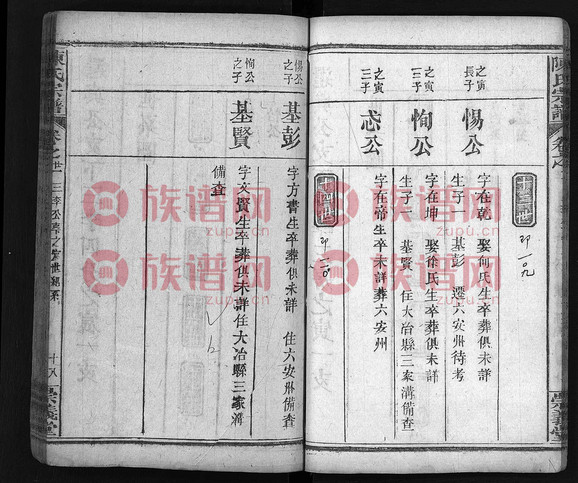 陳氏宗譜
卷之
學義堂
十三世
之寅長子
惕公
字在乾 娶何氏生卒葬俱未詳
生子一 基彭 遷六安州待考
之寅二子
恂公
字在坤 娶徐氏生卒葬俱未詳
生子一 基賢 住大冶縣三家溝備查
之寅三子
忞公
字在帝生卒未詳葬六安州
十四世
惕公之子
基彭
字方書生卒葬俱未詳 住六安州備查
恂公之子
基賢
字文賢生卒葬俱未詳住大冶縣三家溝
備查
陳氏宗譜
十八
學義堂
族谱网
zupu.cn
族谱网
zupu.cn
族谱网
zupu.cn
族谱网
zupu.cn